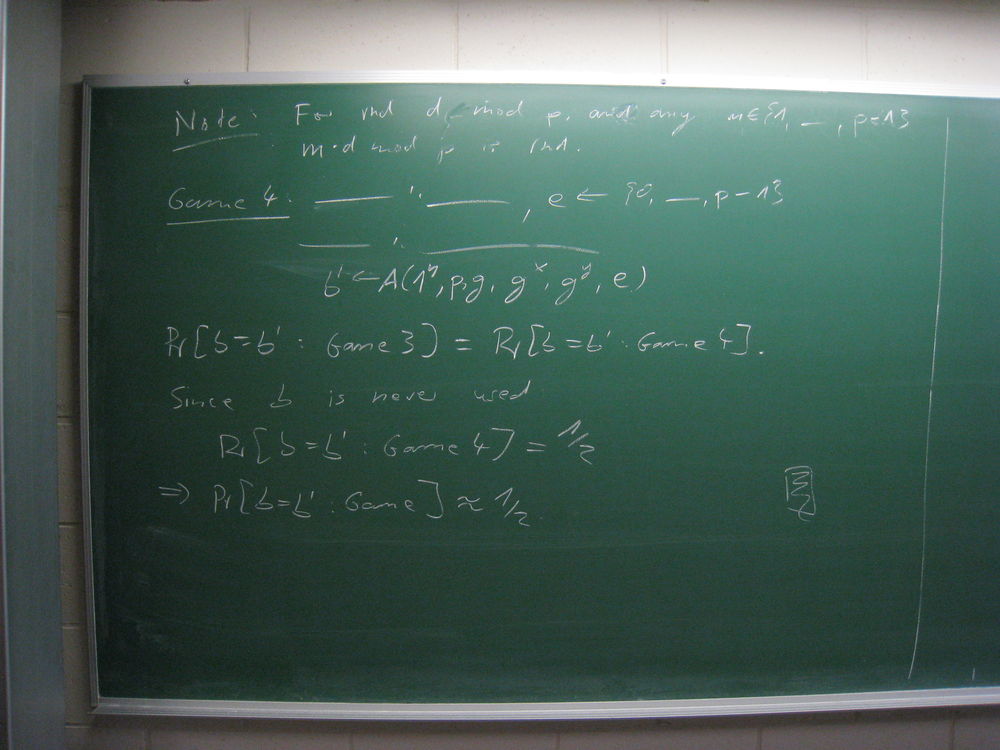 Note: For rnd d mod p, and any m∈{1, —, p-1}
m·d mod p is rnd.
Game 4: —— ; ——, e ← {0, —, p-1}
—— ; ——
b' ← A(1^η, p, g, g^x, g^y, e)
Pr[b=b' : Game 3] = Pr[b=b' : Game 4].
Since b is never used
Pr[b=b' : Game 4] = 1/2
⇒ Pr[b=b' : Game ] ≈ 1/2.